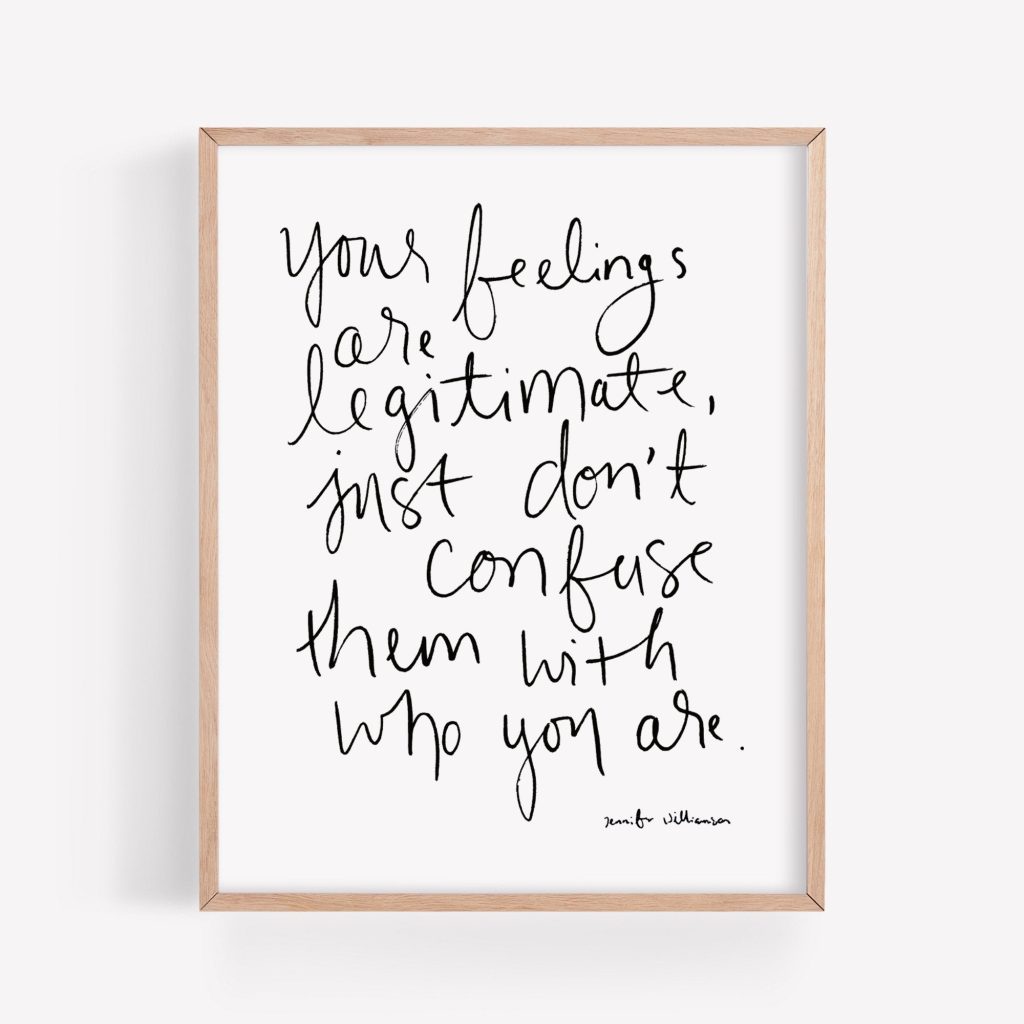 your feelings
are
legitimate,
just don't
confuse
them with
who you are.
Jennifer Williamson